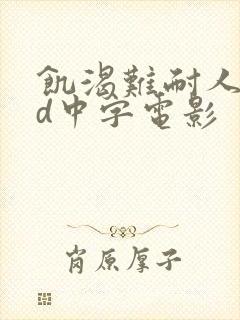 飢渴難耐人
d中字電影
肖原厚子